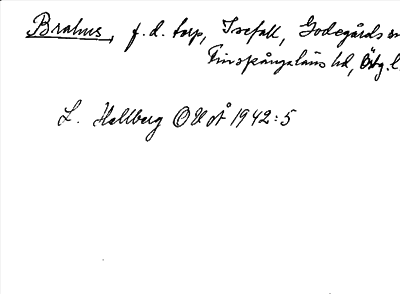 Brahus, f.d. torp, Isefall, Godegårds
Finspångaläns hd, Östg. l.
L. Hallberg OUoÅ 1942:5